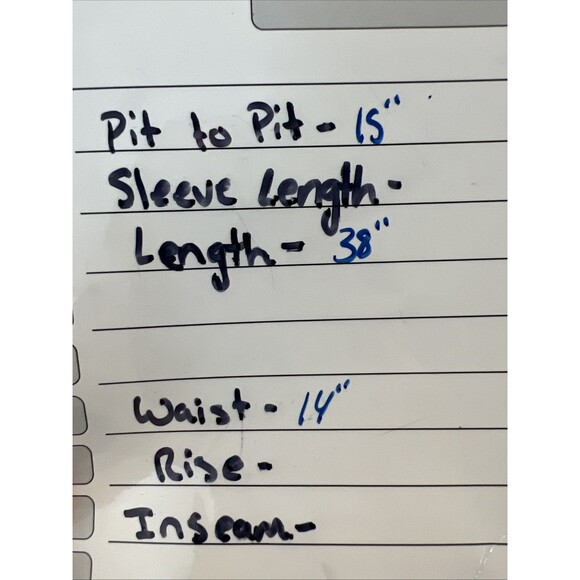 Pit to Pit - 15"
Sleeve Length -
Length - 38"
Waist - 14"
Rise -
Inseam -